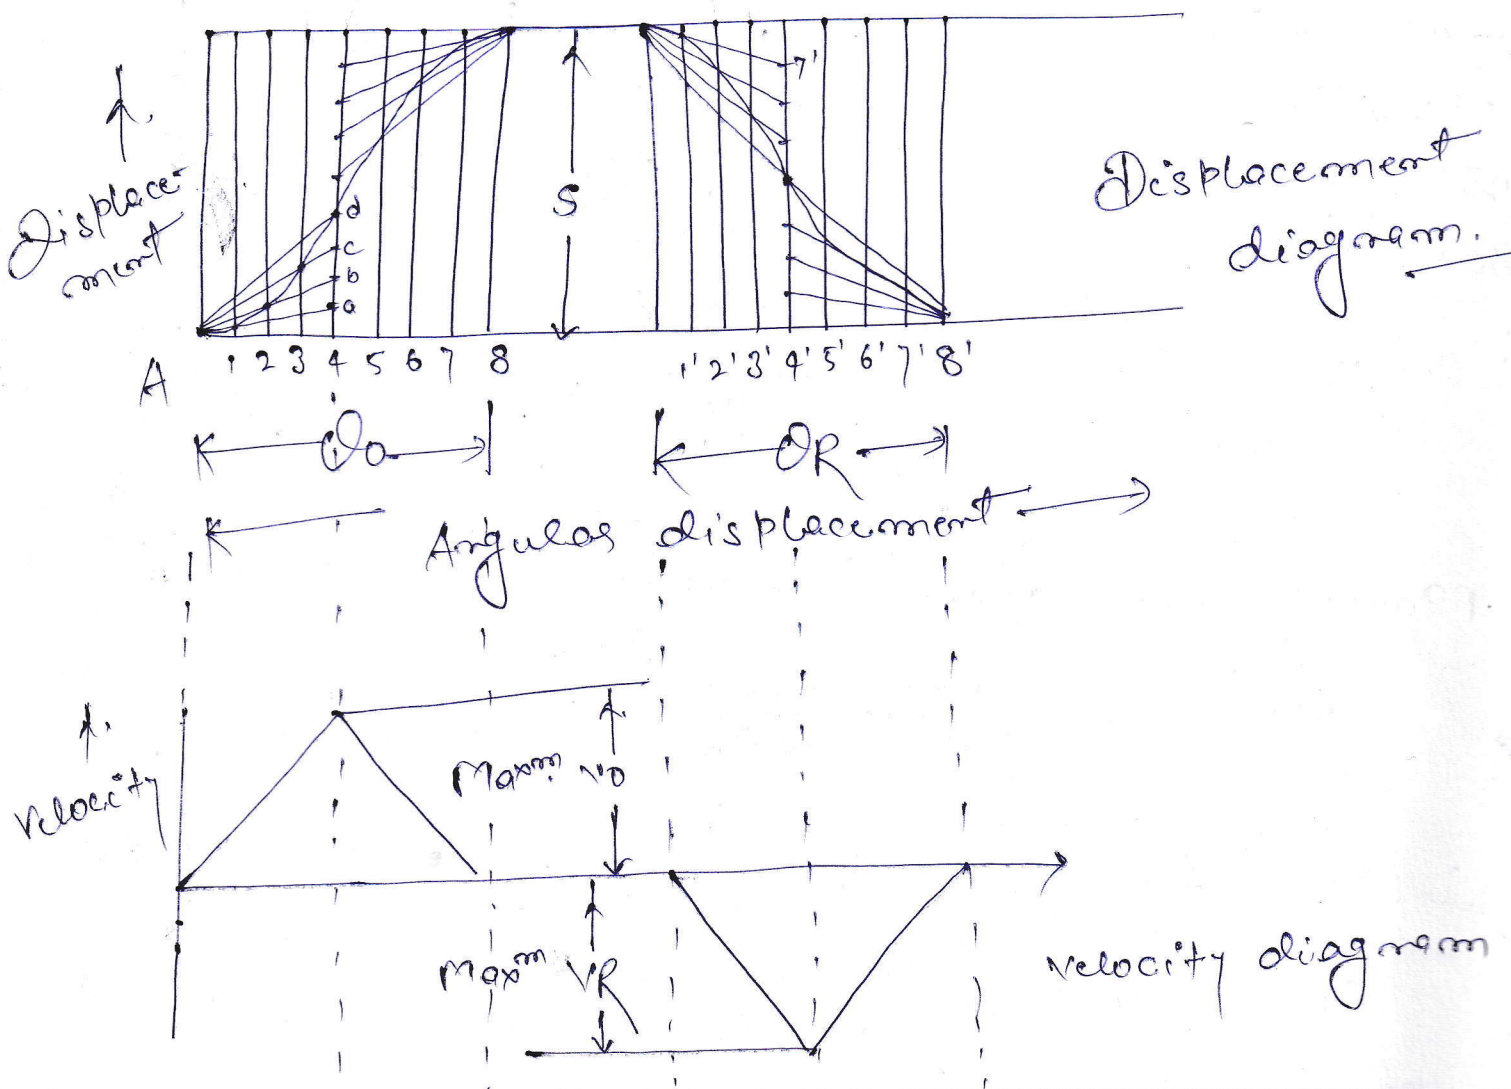 7'
Displace-
ment
d
S
Displacement
diagram.
c
b
a
A
1 2 3 4 5 6 7 8
1' 2' 3' 4' 5' 6' 7' 8'
θo
θR
Angular displacement
Velocity
Maxm vo
Maxm VR
velocity diagram